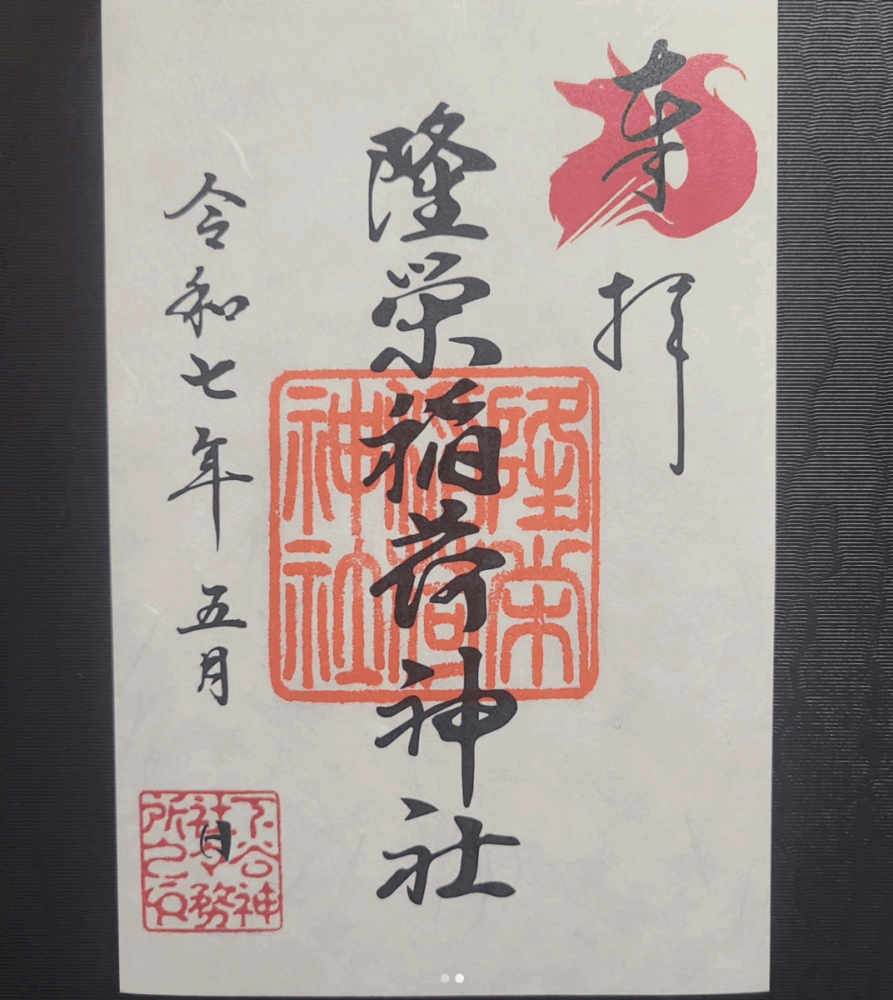 奉拝
隆栄稲荷神社
令和七年 五月 日
隆栄
稲荷
神社
下谷神
社務
所之印